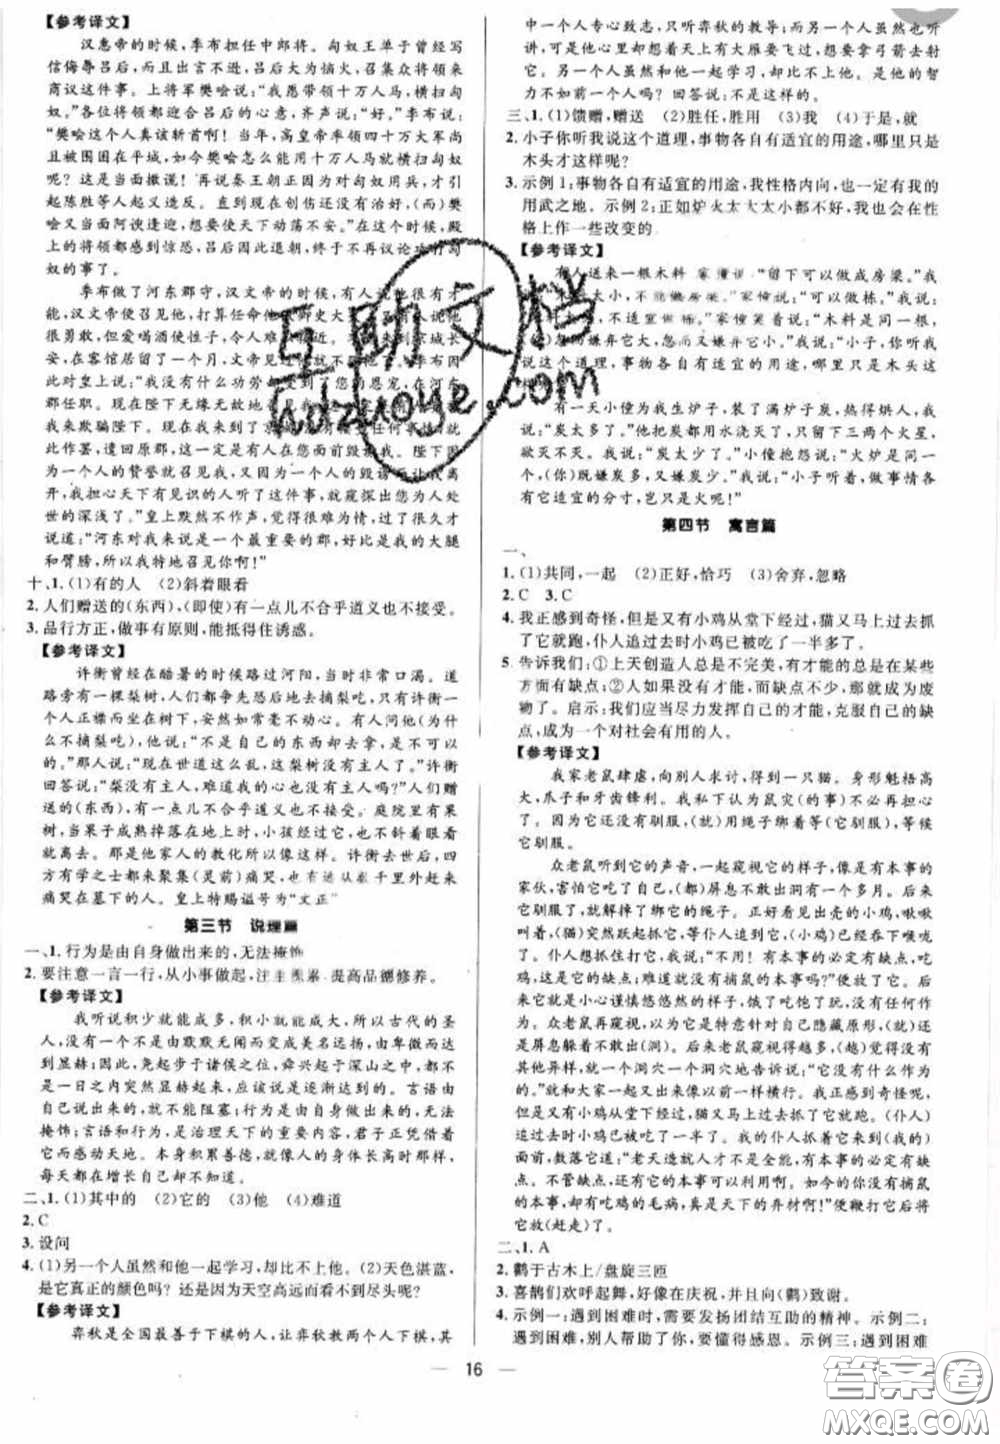 【参考译文】
汉惠帝的时候,季布担任中郎将。匈奴王单于曾经写
信侮辱吕后,而且出言不逊,吕后大为恼火,召集众将领来
商议这件事。上将军樊哙说:“我愿带领十万人马,横扫匈
奴。”各位将领都迎合吕后的心意,齐声说:“好。”季布说:
“樊哙这个人真该斩首啊!当年,高皇帝率领四十万大军尚
且被围困在平城,如今樊哙怎么能用十万人马就横扫匈奴
呢?这是当面撒谎!再说秦王朝正因为对匈奴用兵,才引
起陈胜等人起义造反。直到现在创伤还没有治好,(而)樊
哙又当面阿谀逢迎,想要使天下动荡不安。”在这个时候,殿
上的将领都感到惊恐,吕后因此退朝,终于不再议论攻打匈
奴的事了。
季布做了河东郡守,汉文帝的时候,有人说他很有才
能,汉文帝便召见他,打算任命他 御史大 有人说他
很勇敢,但爱喝酒使性子,令人难 近。季布来到京城长
安,在客馆居留了一个月,文帝召见 季布因
此对皇上说:“我没有什么功劳 受到了您的恩宠,在河东
郡任职。现在陛下无缘无故地召
来欺骗陛下。现在我来到了京 任何事情
此作罢,遣回原郡,这一定是有人在您面前毁 我。陛下因
为一个人的赞誉就召见我,又因为一个人的毁谤
我,我担心天下有见识的人听了这件事,就窥探出您为人处
世的深浅了。”皇上默然不作声,觉得很难为情,过了很久才
说道:“河东对我来说是一个最重要的郡,好比是我的大腿
和臂膀,所以我特地召见你啊!”
十、1.(1)有的人　(2)斜着眼看
2.人们赠送的(东西),(即使)有一点儿不合乎道义也不接受。
3.品行方正,做事有原则,能抵得住诱惑。
【参考译文】
许衡曾经在酷暑的时候路过河阳,当时非常口渴。道
路旁有一棵梨树,人们都争先恐后地去摘梨吃,只有许衡一
个人正襟坐在树下,安然如常毫不动心。有人问他(为什
么不摘梨吃),他说:“不是自己的东西却去拿,是不可以
的。”那人说:“现在世道这么乱,这梨树没有主人了。”许衡
回答说:“梨没有主人了,难道我的心也没有主人吗?”人们
赠送的(东西),有一点儿不合乎道义就不接受。庭院里有果
树,当果子成熟掉落在地上时,小孩经过它,也不斜着眼看
就离去。那是他家人的教化所以像这样。许衡去世,四
方有学之士都来聚集(灵前)痛哭,也有 千里外赶来
痛哭在墓下的人。皇上特赐谥号为“文正”
第三节　说理篇
一、1.行为是由自身做出来的,无法掩饰
2.要注意一言一行,从小事做起,注重积累,提高品德修养。
【参考译文】
我听说积少就能成多,积小就能成大,所以古代的圣
人,没有一个不是由默默无闻而变成美名远扬,由卑微而达
到显赫;因此,尧起步于诸侯之位,舜兴起于深山之中,都不
是一日之内突然显赫起来,应该说是逐渐达到的。言语由
自己说出来的,不能阻塞;行为是由自身做出来的,无法
掩饰;言语和行为,是治理天下的重要内容,君子正凭借着
它们感动天地。本身积累善德,就像人的身体长高时那样,
每天都在增长自己却不知道。
二、1.(1)其中的　(2)它的　(3)他　(4)难道
2.C
3.设问
4.(1)另一个人虽然和他一起学习,却比不上他。(2)天色湛蓝,
是它真正的颜色吗?还是因为天空高远而看不到尽头呢?
【参考译文】
弈秋是全国最善于下棋的人,让弈秋教两个人下棋,其
中一个人专心致志,只听弈秋的教导;而另一个人虽然也听
讲,可是他心里却想着天上有大雁要飞过,想要拿弓箭去射
它。虽然和他一起学习,却比不上他。是他的智
力不如前一个人吗?回答说:不是的。
三、1.(1)馈赠,赠送　(2)胜任,胜用　(3)我　(4)于是,就
2.小子你听我说这个道理,事物各自有适宜的用途,哪里只是
木头才这样呢?
3.示例1:事物各自有适宜的用途,我性格内向,也一定有我的
用武之地。示例2:正如炉火太大太小都不好,我也会在性
格上作一些改变的
【参考译文】
有人送来一根木料,家僮说:“留下可以做成房梁。”我
木太小,不能做房 家僮说:“可以做栋。”我说:
太大,不适宜做栋。”家僮笑着说:“木料是同一
嫌弃它大,忽而又嫌弃它小。”我说:“小子,你听我
说这个道理,事物各自有适宜的用途,哪里只是木头这样
有一天小僮为我生炉子,装了满炉子炭,热得烘人,我
说:“炭太多了。”小僮却用水浇灭了,只留下三两个火星,
欲灭不灭。我说:“炭太少了。”小僮抱怨说:“火炉是同一
个,(您)既嫌炭多,又嫌炭少。”我说:“小子,做事情各
有它适宜的分寸,岂只是火呢!”
第四节　寓言篇
一、
1.(1)共同,一起　(2)正好,恰巧　(3)舍弃,忽略
2.C　3.C
4.我正感到奇怪,但是又有小鸡从堂下经过,猫又马上过去抓
了它就跑,仆人追过去时小鸡已被吃了一半多了。
5.告诉我们:①上天创造人总是不完美,有才能的总是在某些
方面有缺点;②人如果没有才能,而缺点不少,那就成为废
物了。启示:我们应当尽力发挥自己的才能,克服自己的缺
点,成为一个对社会有用的人。
【参考译文】
我家老鼠肆虐,向别人求讨,得到一只猫。身形魁梧高
大,爪子和牙齿锋利。我私下认为鼠灾(的事)不必再担心
了。因为它还没有驯服,(就)用绳子绑着等(它驯服),等候
它驯服。
众老鼠听到它的声音,一起窥视它的样子,像是有本事的
家伙,害怕它吃了自己,(都)屏息不敢出洞有一个多月。后来
它驯服了,就解掉了绑它的绳子。正好看见出壳的小鸡,啾啾
叫,(猫)突然跃起抓住它。仆人追到它,(小鸡)已经吞下喉咙了。
仆人想抓住打它,我说:“不用!有本事的必定有缺点,
吞小鸡就是它的缺点;难道就没有捕鼠的本事吗?”便放了它。后
来它就是小心谨慎悠悠然的样子,饿了吃饱了玩,没有任何作
为。众老鼠再窥视,以为它是特意针对自己隐藏原形,(就)还
是屏息躲着不敢出(洞)。后来老鼠窥视得越多,(越)觉得没有
其他异样,就一个洞穴一个洞穴地告诉说:“它没有什么作为
的。”就和大家一起又出来像以前一样横行。我正奇怪呢,但
是又有小鸡在堂下经过,猫又马上过去抓了它就跑。(仆人)
追过去小鸡已被吃了一半了。我的仆人抓着它来到(我)的
面前,数落它说:“老天造就人才不是全能,有本事的必定有缺
点。不管缺点,还可以用它的本事。如今你的没有捕鼠
的本事,却有吃鸡的毛病,真是天下的弃材啊!”便鞭打它后将
它放(赶走)了。
二、1.A
2.鹳于古木上/盘旋三匝
3.喜鹊们欢呼起舞,好像在庆祝,并且向(鹳)致谢。
4.示例一:遇到困难时,需要发扬团结互助的精神。示例二:
遇到困难,别人帮助了你,要懂得感恩。示例三:遇到困难
16
互助文档
hdzuoye.com
答案圈
MXQE.COM